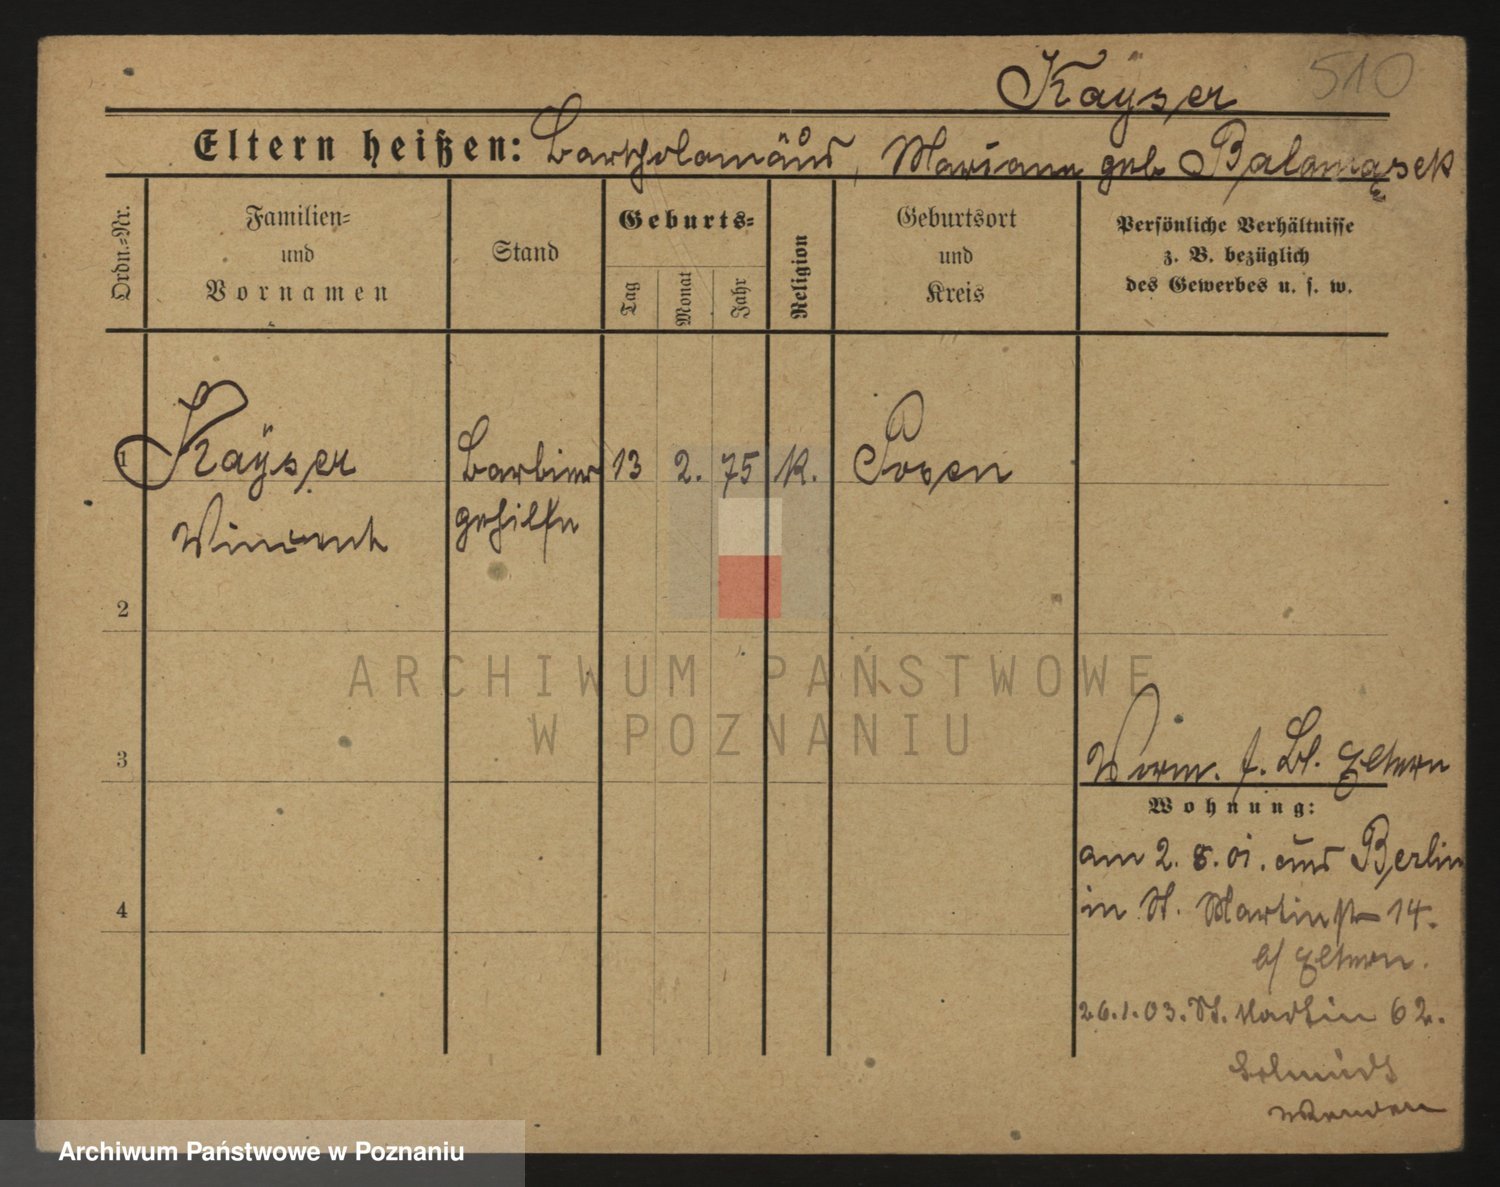 Kaÿser 510
Eltern heißen: Bartholomäus, Mariane geb Balamącek
Ordn.=Nr.
Familien=
und
Vornamen
Stand
Geburts=
Tag
Monat
Jahr
Religion
Geburtsort
und
Kreis
Persönliche Verhältnisse
z. B. bezüglich
des Gewerbes u. s. w.
1 Kaÿser Barbier 13 2. 75 K. Posen
Vincent gehilfe
2
3
4
ARCHIWUM PAŃSTWOWE
W POZNANIU
Vorm. f. Bl. Eltern
Wohnung:
am 2. 8. 01. aus Berlin
in St. Martinstr 14.
b/ Eltern.
26.1.03. St. Martin 62.
wenden
Archiwum Państwowe w Poznaniu